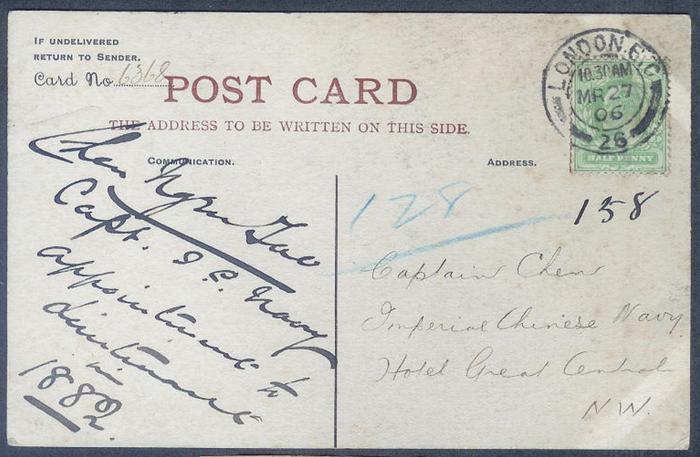 IF UNDELIVERED
RETURN TO SENDER.
Card No 6368
POST CARD
THE ADDRESS TO BE WRITTEN ON THIS SIDE.
COMMUNICATION.
ADDRESS.
LONDON. E.C
10.30AM
MR 27
06
26
HALF PENNY
128
158
Chen
Capt. I. C. Navy
appointment to
lieutenant
in
1882.
Captain Chen
Imperial Chinese Navy
Hotel Great Central
N.W.